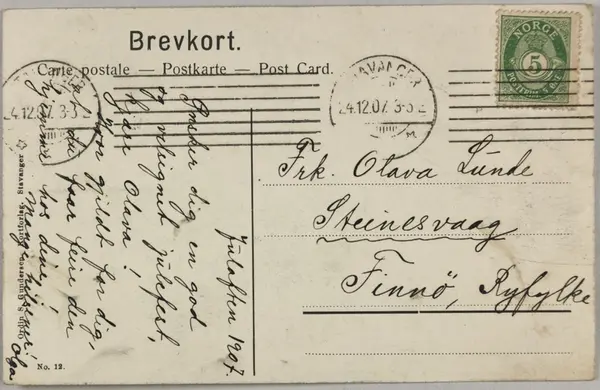 Brevkort.
Carte postale — Postkarte — Post Card.
NORGE
5
STAVANGER
24.12.07. 3-3 E
M
Frk. Olava Lunde
Steinesvaag
Finnö, Ryfylke
Julaften 1907.
Ønsker dig en god
og velsignet julefest,
kjære Olava!
Hvor gjildt for dig,
at du faar feire den
hjemme hos dine!
Mange hilsener!
Olga
No. 12.
Stavanger